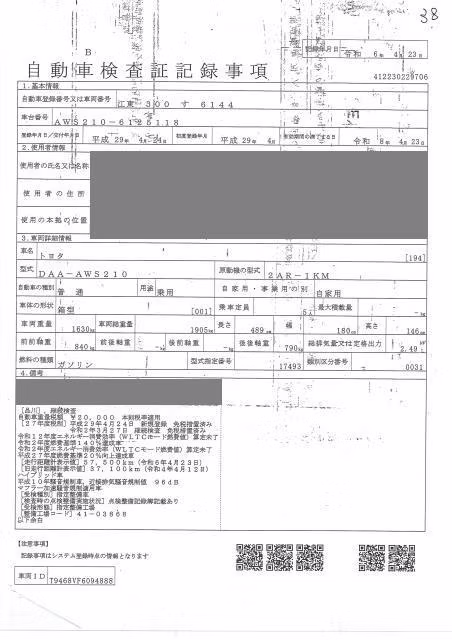 38
B
自動車検査証記録事項
記録年月日 令和 6年 4月 23日
412230229706
1.基本情報
自動車登録番号又は車両番号 江東 300 す 6144
車台番号 AWS210-6125118
登録年月日/交付年月日 平成 29年 4月 24日 初度登録年月 平成 29年 4月 有効期間の満了する日 令和 8年 4月 23日
2.使用者情報
使用者の氏名又は名称
使用者の住所
使用の本拠の位置
3.車両詳細情報
車名 トヨタ [194]
型式 DAA-AWS210 原動機の型式 2AR-1KM
自動車の種別 普通 用途 乗用 自家用・事業用の別 自家用
車体の形状 箱型 [001] 乗車定員 5人 最大積載量 -kg
車両重量 1630kg 車両総重量 1905kg 長さ 489cm 幅 180cm 高さ 146cm
前前軸重 840kg 前後軸重 -kg 後前軸重 -kg 後後軸重 790kg 総排気量又は定格出力 2.49
燃料の種類 ガソリン 型式指定番号 17493 類別区分番号 0031
4.備考
[品川], 継続検査
自動車重量税額 ¥20,000 本則税率適用
[27年度税別] 平成29年4月24日 新規登録 免税措置済み
令和2年3月27日 継続検査 免税措置済み
令和12年度エネルギー消費効率(WLTCモード燃費値)算定未了
令和2年度燃費基準140%達成車
令和2年度エネルギー消費効率(WLTCモード燃費値)算定未了
平成27年度燃費基準20%向上達成車
[走行距離計表示値] 57,500km(令和6年4月23日)
[旧走行距離計表示値] 37,100km(令和4年4月12日)
ハイブリッド車
平成10年騒音規制車、近接排気騒音規制値 96dB
マフラー加速騒音規制適用車
[受検種別] 指定整備車
[検査時の点検整備実施状況] 点検整備記録簿記載あり
[受検形態] 指定整備工場
[整備工場コード] 41-03868
以下余白
【注意事項】
記録事項はシステム登録時点の情報となります
車両ID T9468VF6094888